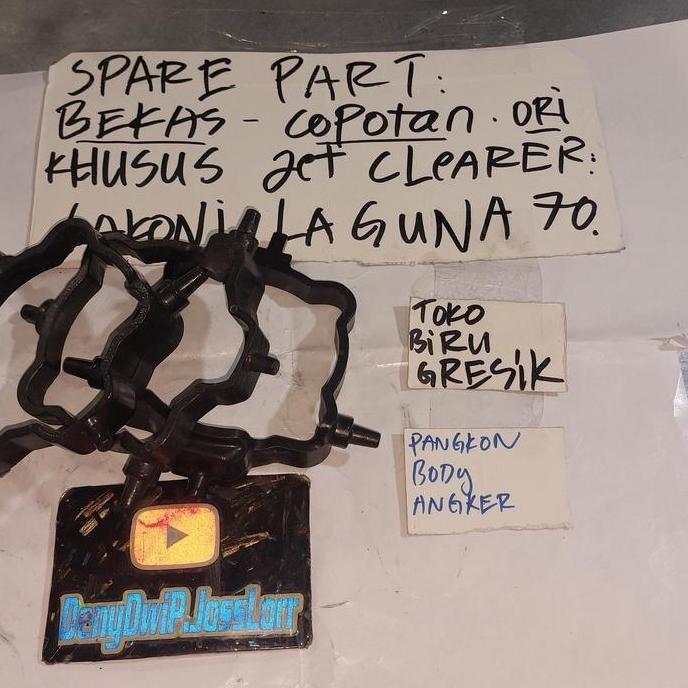 SPARE PART:
BEKAS - COPOTAN. ORI
KHUSUS Jet CLEARER:
LAKONI LAGUNA 70.
TOKO
BIRU
GRESIK
PANGKON
BODY
ANGKER
DenyDwiP.JossLorr